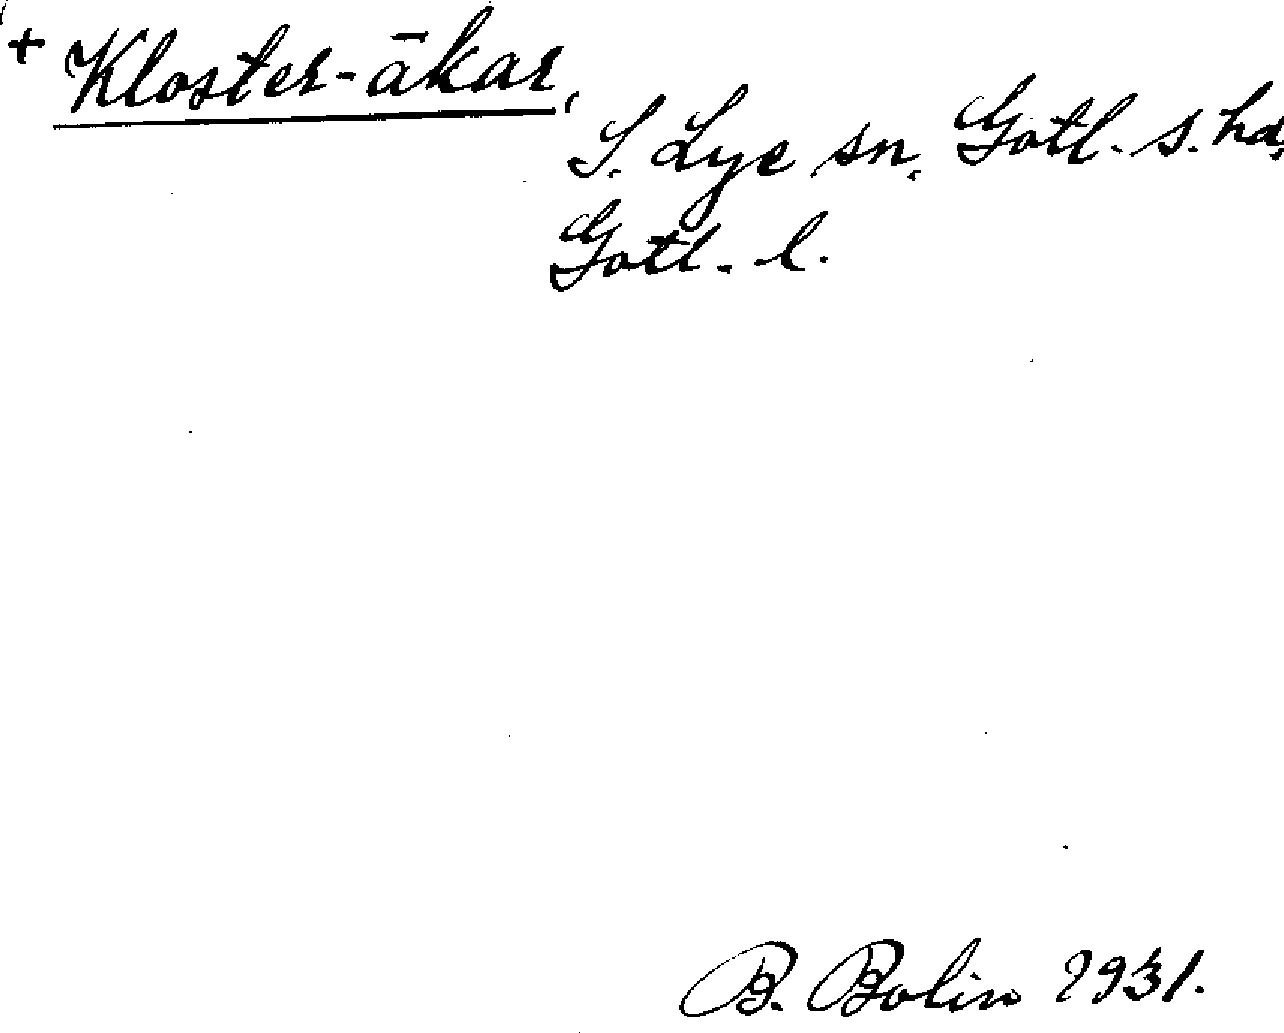 + Kloster-ākar,
S. Lye sn, Gotl. s. hd,
Gotl. l.
B. Bolin 1931.